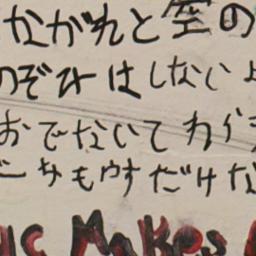 かがれと空の
のぞみはしないよ
おでないてわらう
ごみもやすだけな
ic Makes